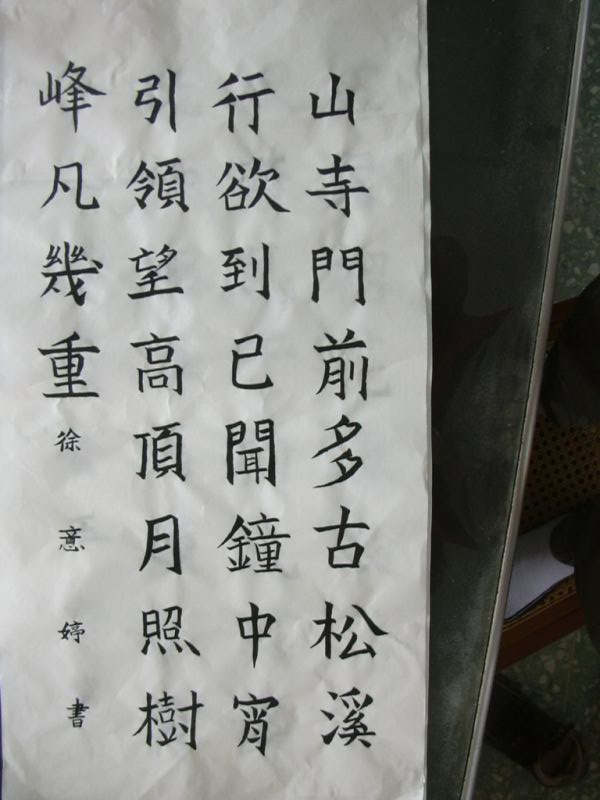 山寺門前多古松溪
行欲到已聞鐘中宵
引領望高頂月照樹
峰凡幾重
徐意婷書